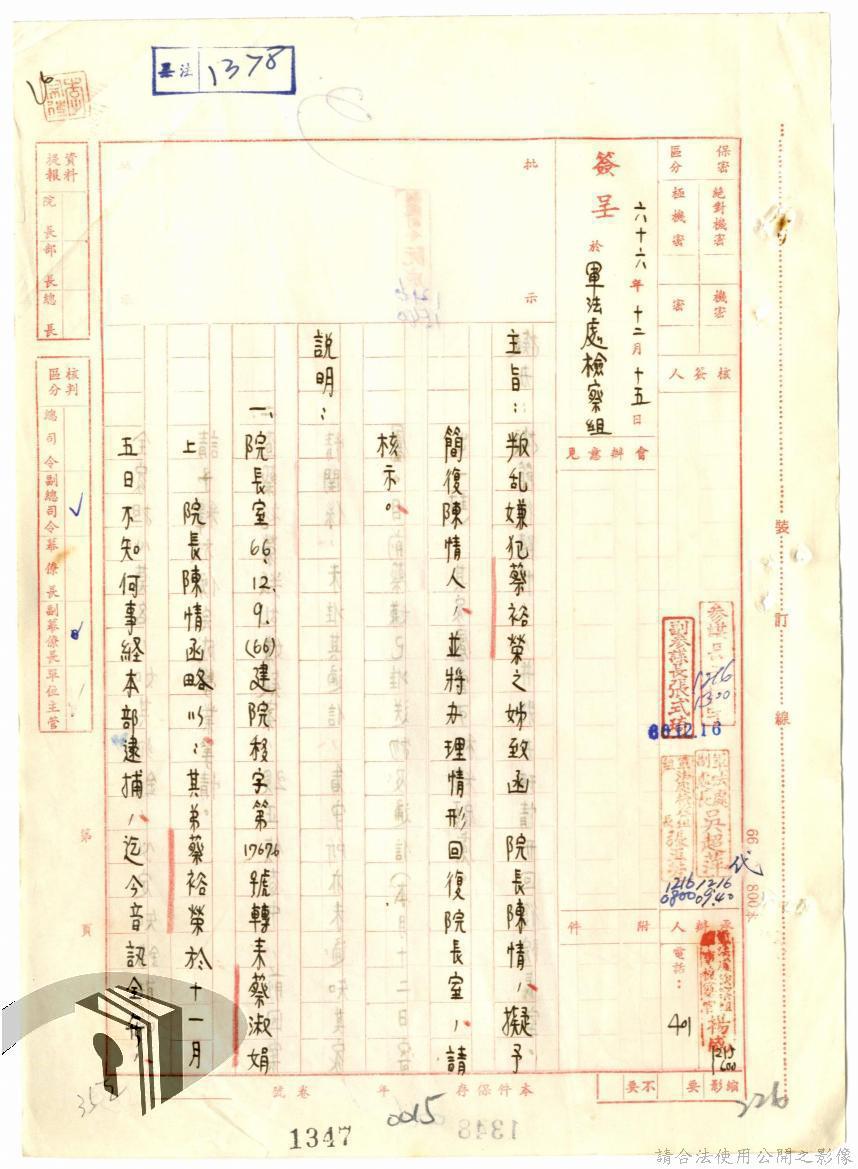 吴注 1378
保密區分
絕對機密
極機密
機密
密
核簽人
會辦意見
簽呈 於 軍法處檢察組
六十六年十二月十五日
批
示
主旨：叛乱嫌犯蔡裕榮之姊致函 院長陳情，擬予
簡復陳情人，並將办理情形回復院長室，請
核示。
說明：
一、院長室66.12.9.(66)建院移字第17676號轉来蔡淑娟
上 院長陳情函略以：其弟蔡裕榮於十一月
五日不知何事経本部逮捕，迄今音訊全無，
資料提報
院長
部長
總長
核判區分
總司令
副總司令
幕僚長
副幕僚長
單位主管
第
頁
副參謀長張式琦
66.12.16
參謀長
1216
1300
軍法處副處長吳超萍
代
1216
0940
1216
0800
附件
承辦人
電話：
401
楊
1215
1600
縮影
要
不要
本件保存 年
卷號
裝訂線
66
800本
1347
0015
1348
226
請合法使用公開之影像